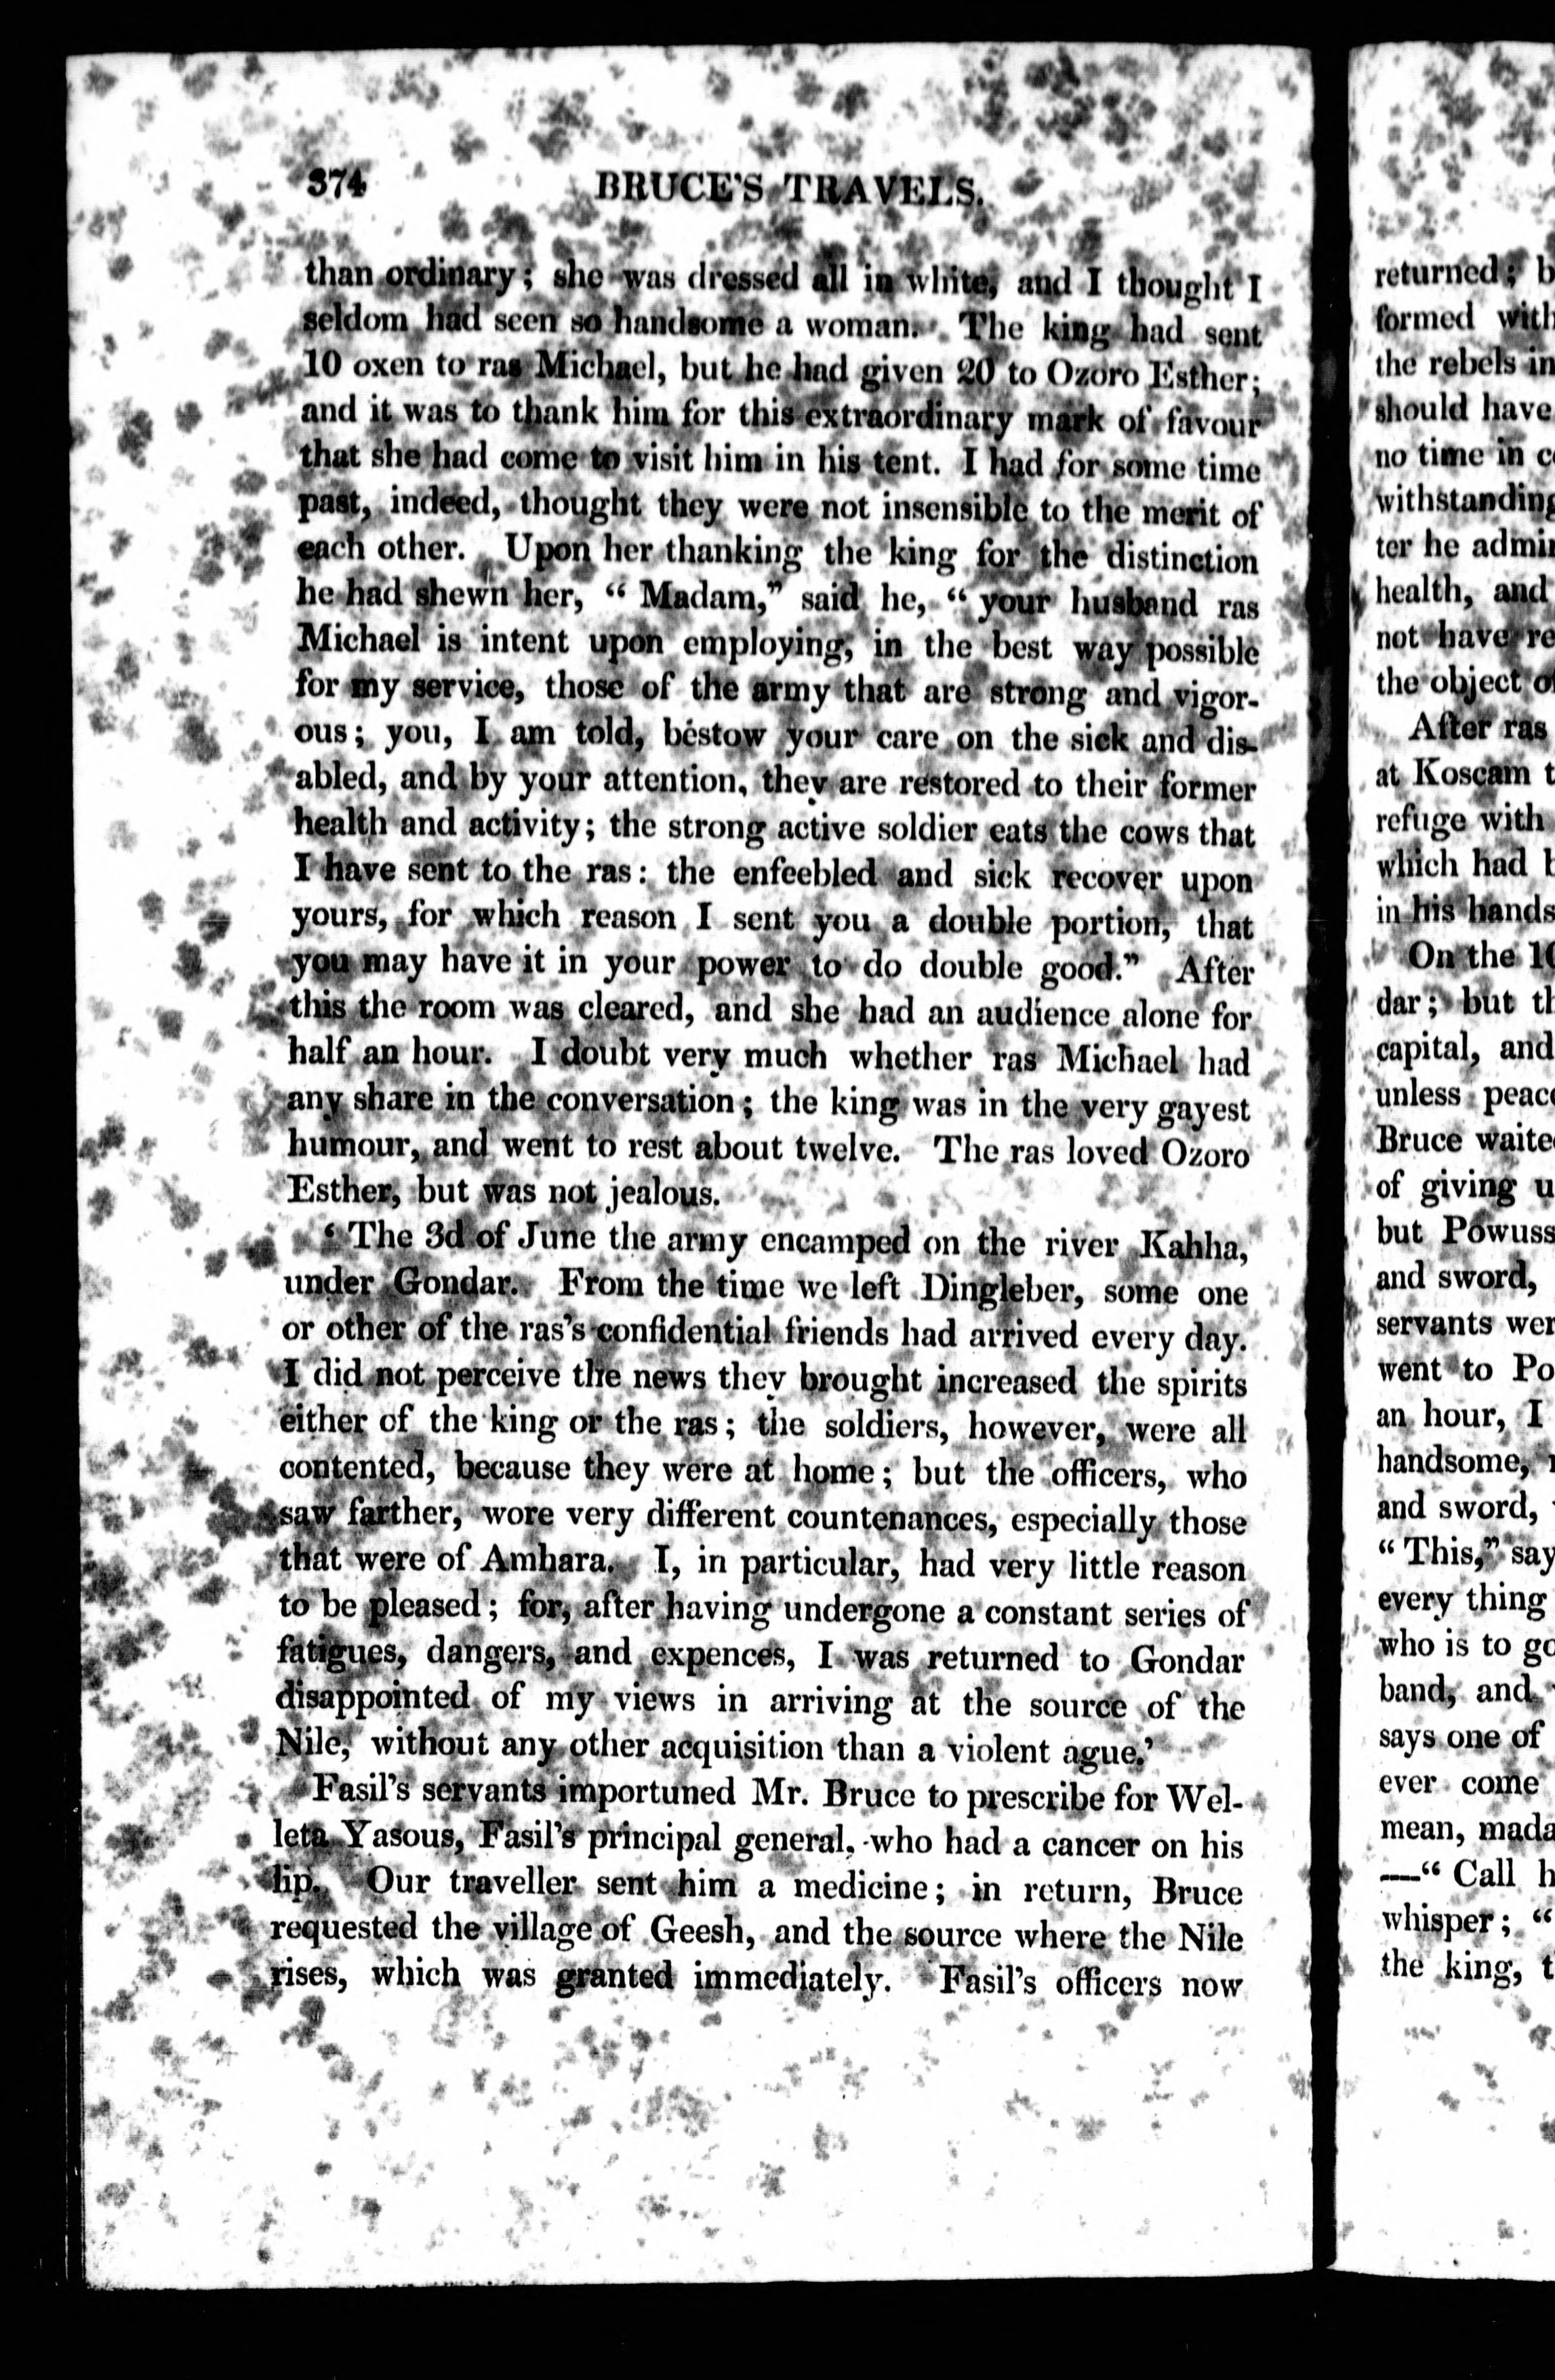 374 BRUCE'S TRAVELS.
than ordinary; she was dressed all in white, and I thought I
seldom had seen so handsome a woman. The king had sent
10 oxen to ras Michael, but he had given 20 to Ozoro Esther;
and it was to thank him for this extraordinary mark of favour
that she had come to visit him in his tent. I had for some time
past, indeed, thought they were not insensible to the merit of
each other. Upon her thanking the king for the distinction
he had shewn her, “ Madam,” said he, “ your husband ras
Michael is intent upon employing, in the best way possible
for my service, those of the army that are strong and vigor-
ous; you, I am told, bestow your care on the sick and dis-
abled, and by your attention, they are restored to their former
health and activity; the strong active soldier eats the cows that
I have sent to the ras: the enfeebled and sick recover upon
yours, for which reason I sent you a double portion, that
you may have it in your power to do double good.” After
this the room was cleared, and she had an audience alone for
half an hour. I doubt very much whether ras Michael had
any share in the conversation; the king was in the very gayest
humour, and went to rest about twelve. The ras loved Ozoro
Esther, but was not jealous.
‘ The 3d of June the army encamped on the river Kahha,
under Gondar. From the time we left Dingleber, some one
or other of the ras's confidential friends had arrived every day.
I did not perceive the news they brought increased the spirits
either of the king or the ras; the soldiers, however, were all
contented, because they were at home; but the officers, who
saw farther, wore very different countenances, especially those
that were of Amhara. I, in particular, had very little reason
to be pleased; for, after having undergone a constant series of
fatigues, dangers, and expences, I was returned to Gondar
disappointed of my views in arriving at the source of the
Nile, without any other acquisition than a violent ague.’
Fasil's servants importuned Mr. Bruce to prescribe for Wel-
leta Yasous, Fasil's principal general, who had a cancer on his
lip. Our traveller sent him a medicine; in return, Bruce
requested the village of Geesh, and the source where the Nile
rises, which was granted immediately. Fasil's officers now
returned; b
formed with
the rebels in
should have
no time in c
withstanding
ter he admi
health, and
not have re
the object o
After ras
at Koscam t
refuge with
which had b
in his hands
On the 10
dar; but th
capital, and
unless peac
Bruce waite
of giving u
but Powuss
and sword,
servants wer
went to Po
an hour, I
handsome,
and sword,
“ This,” say
every thing
who is to go
band, and
says one of
ever come
mean, mada
—“ Call h
whisper; “
the king, t